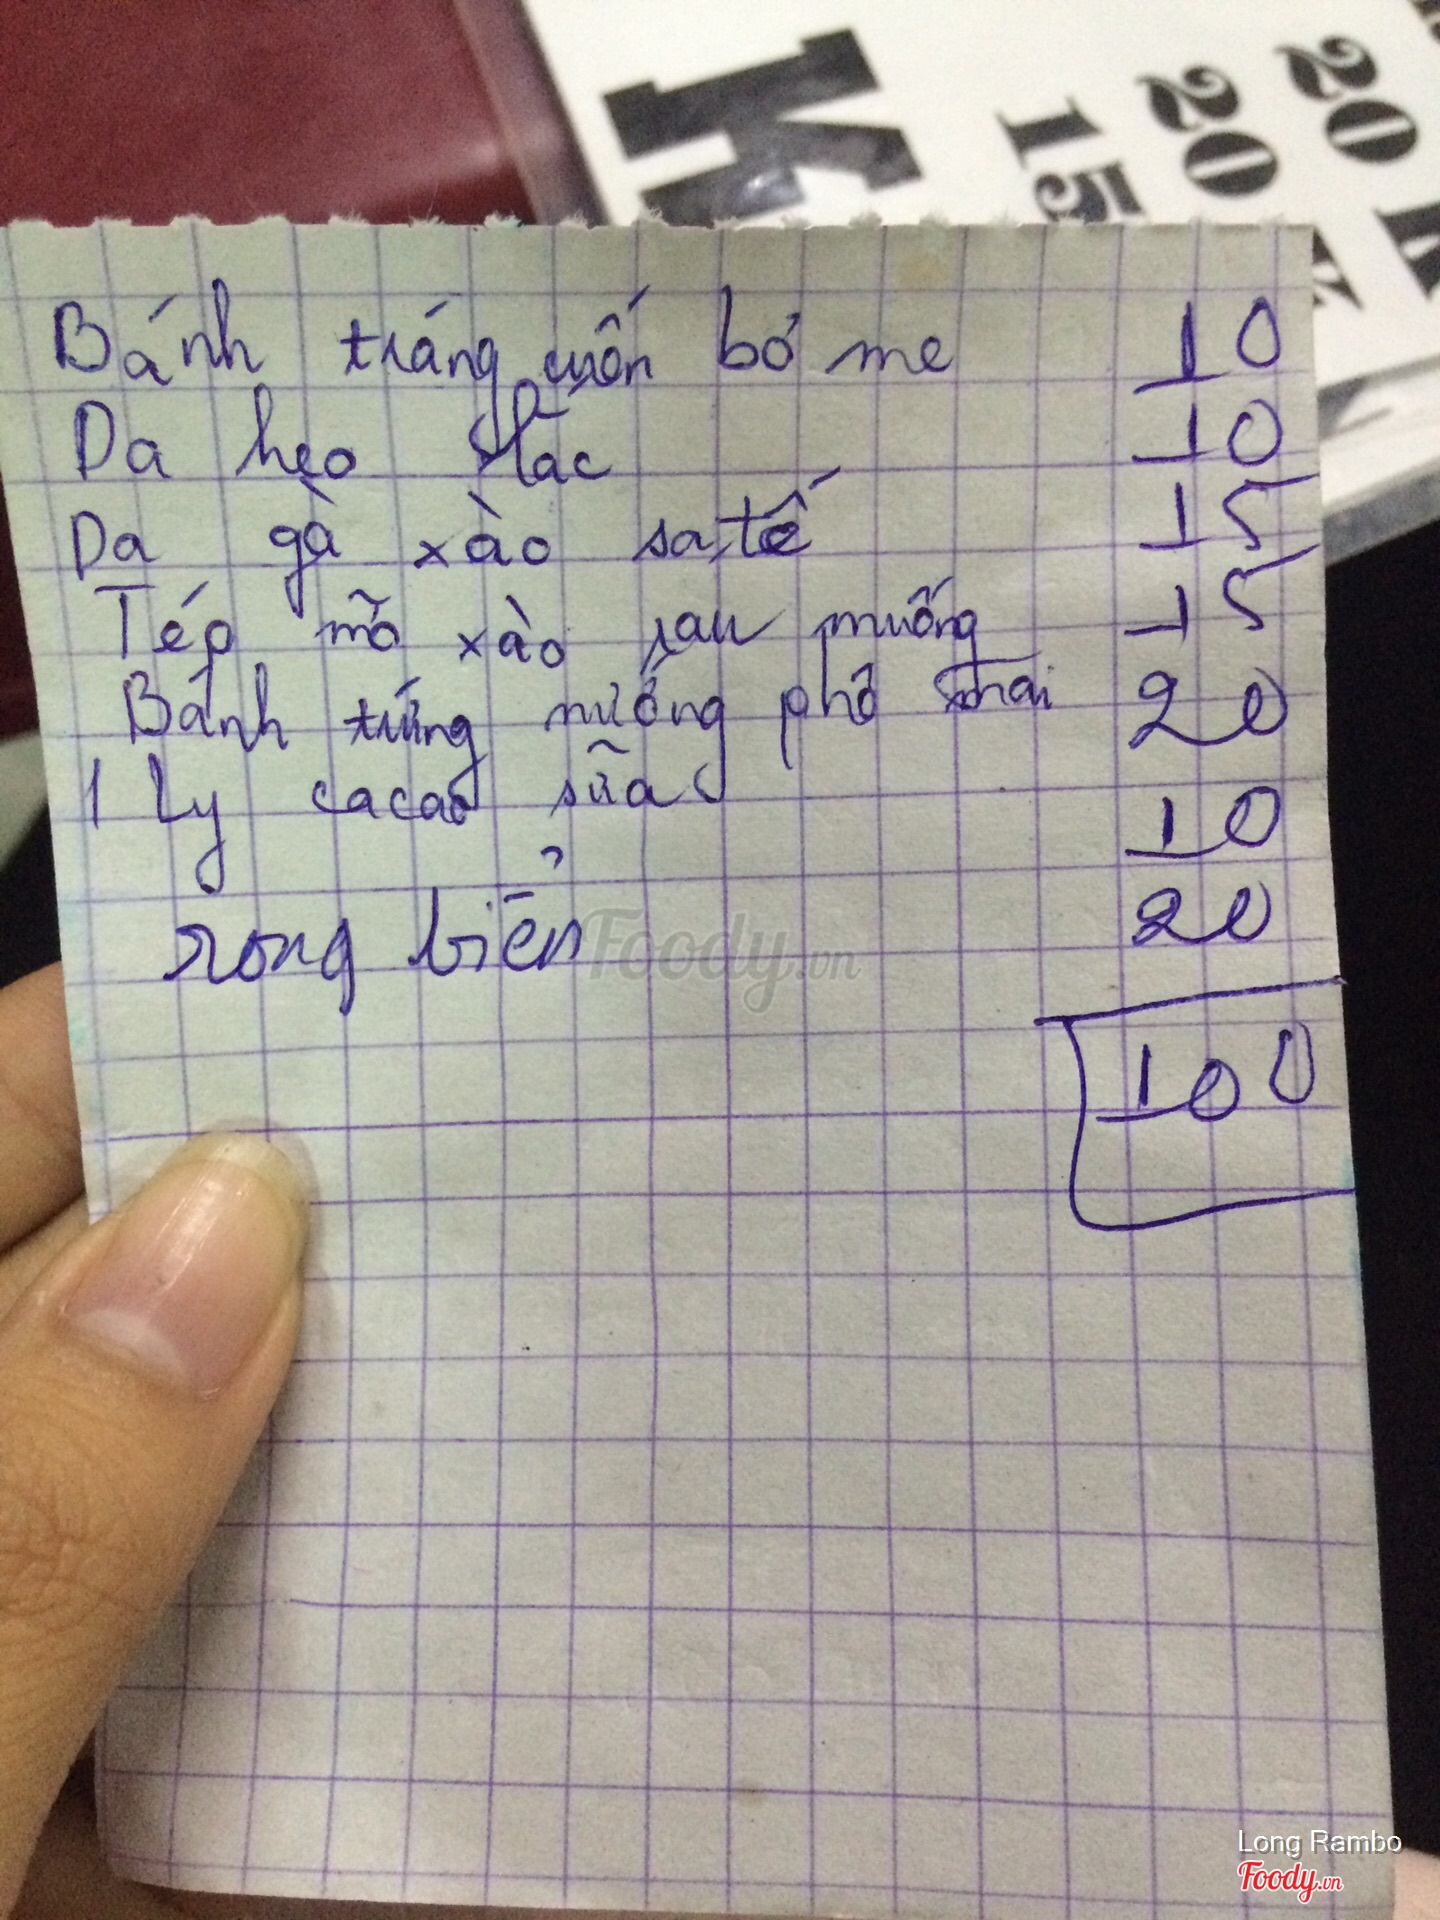 K
15
20 K
20 K
Bánh tráng cuốn bơ me 10
Da heo lắc 10
Da gà xào sa tế 15
Tép mỡ xào rau muống 15
Bánh tráng nướng phô mai 20
1 Ly cacao sữa 10
rong biển 20
100
Foody.vn
Long Rambo
Foody.vn